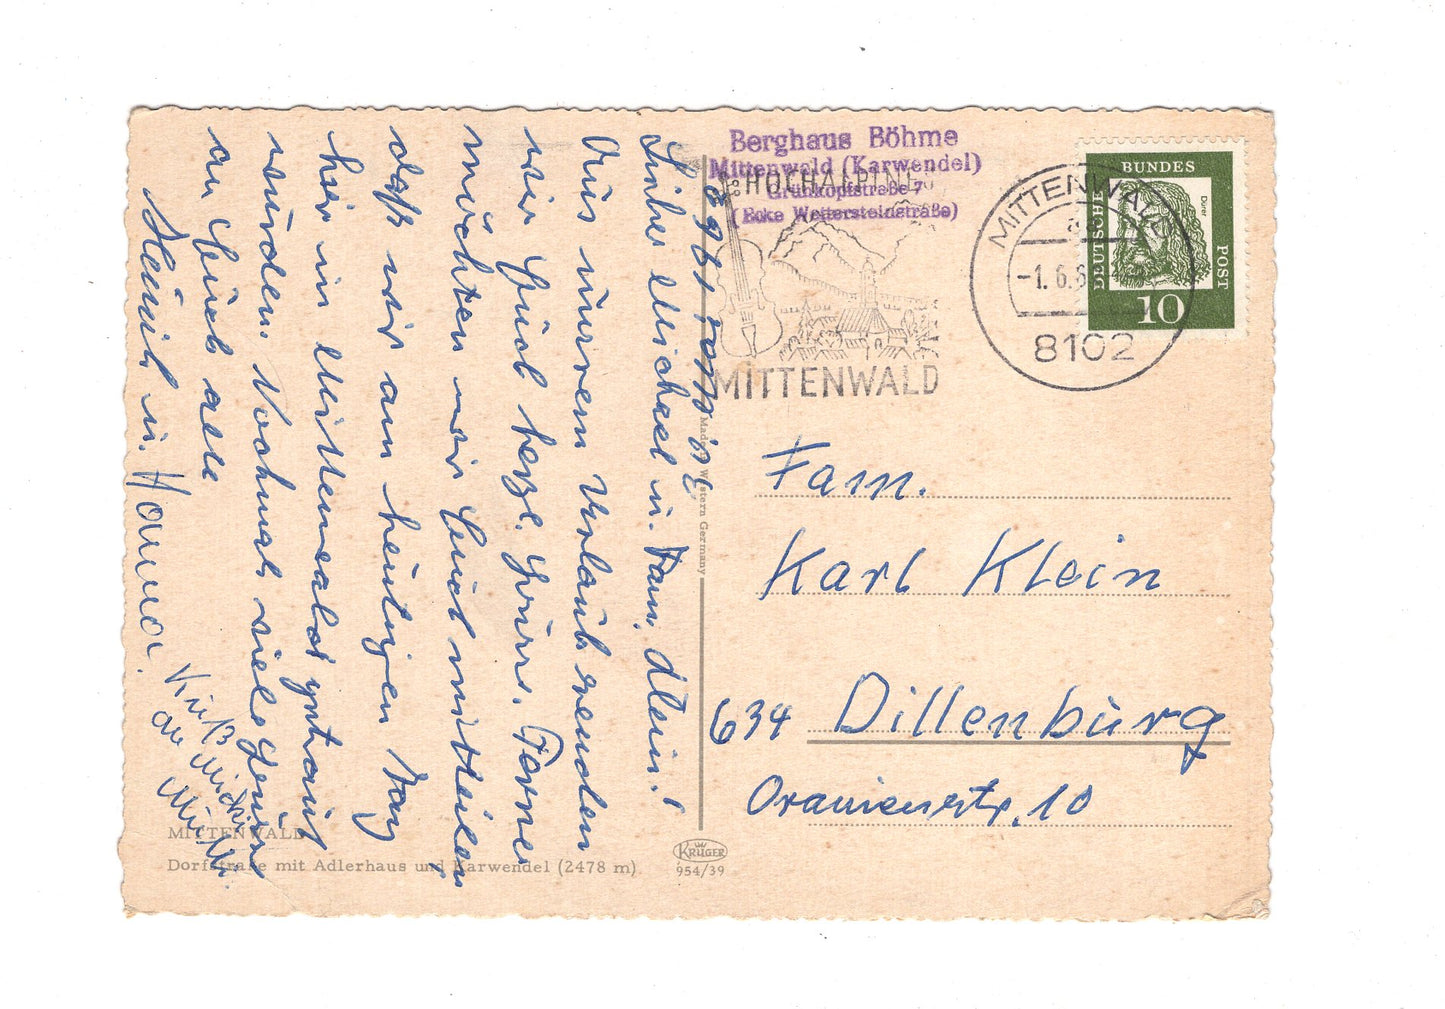 Berghaus Böhme
Mittenwald (Karwendel)
Grünkopfstraße 7
(Ecke Wettersteinstraße)
HOCHALPINE
MITTENWALD
MITTENWALD
-1.6.6
8102
DEUTSCHE
BUNDES
POST
Dürer
10
Juni 1968
Lieber Michael u. Fam. Klein!
Aus unserem Urlaub senden
wir Euch herzl. Grüsse. Ferner
möchten wir Euch mitteilen
daß wir am heutigen Tag
hier in Mittenwald getraut
wurden. Nochmal viele Grüsse
an Euch alle
u. Hannelore.
Made in Western Germany
Fam.
Karl Klein
634 Dillenburg
Oranienstr. 10
MITTENWALD
Dorfstraße mit Adlerhaus und Karwendel (2478 m)
KRÜGER
954/39